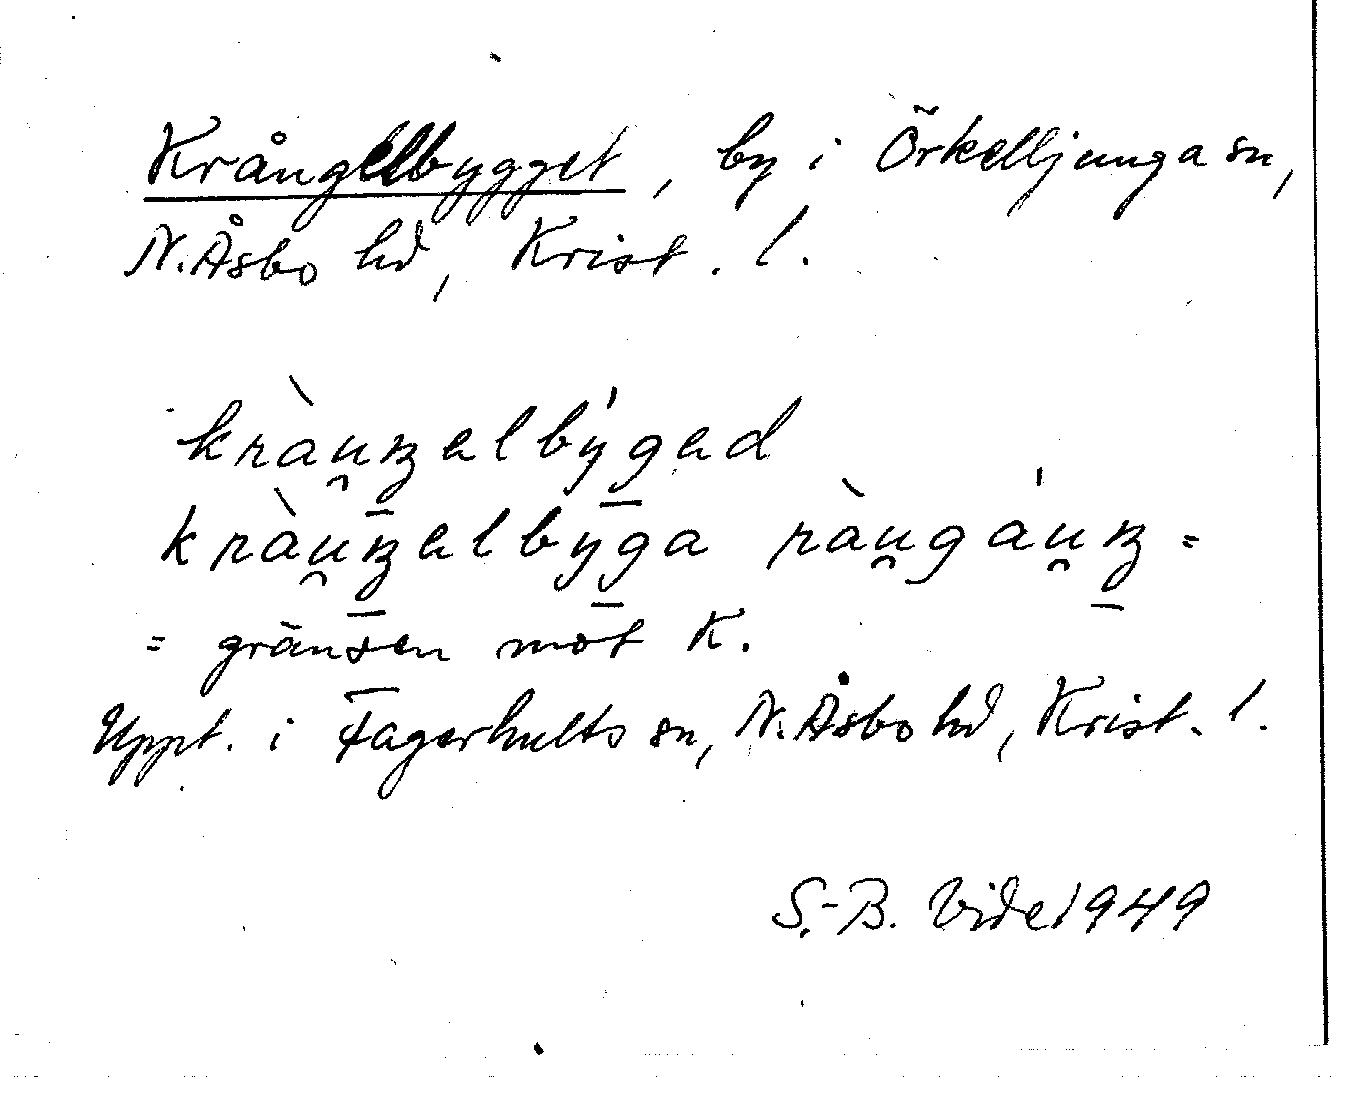 Krångelbygget, by i Örkelljunga sn,
N. Åsbo hd, Krist. l.
kràu̯ŋelbýged
kràu̯ŋelbyga ràu̯gáu̯ŋ =
= gränsen mot K.
Uppt. i Fagerhults sn, N. Åsbo hd, Krist. l.
S.-B. Vide 1949